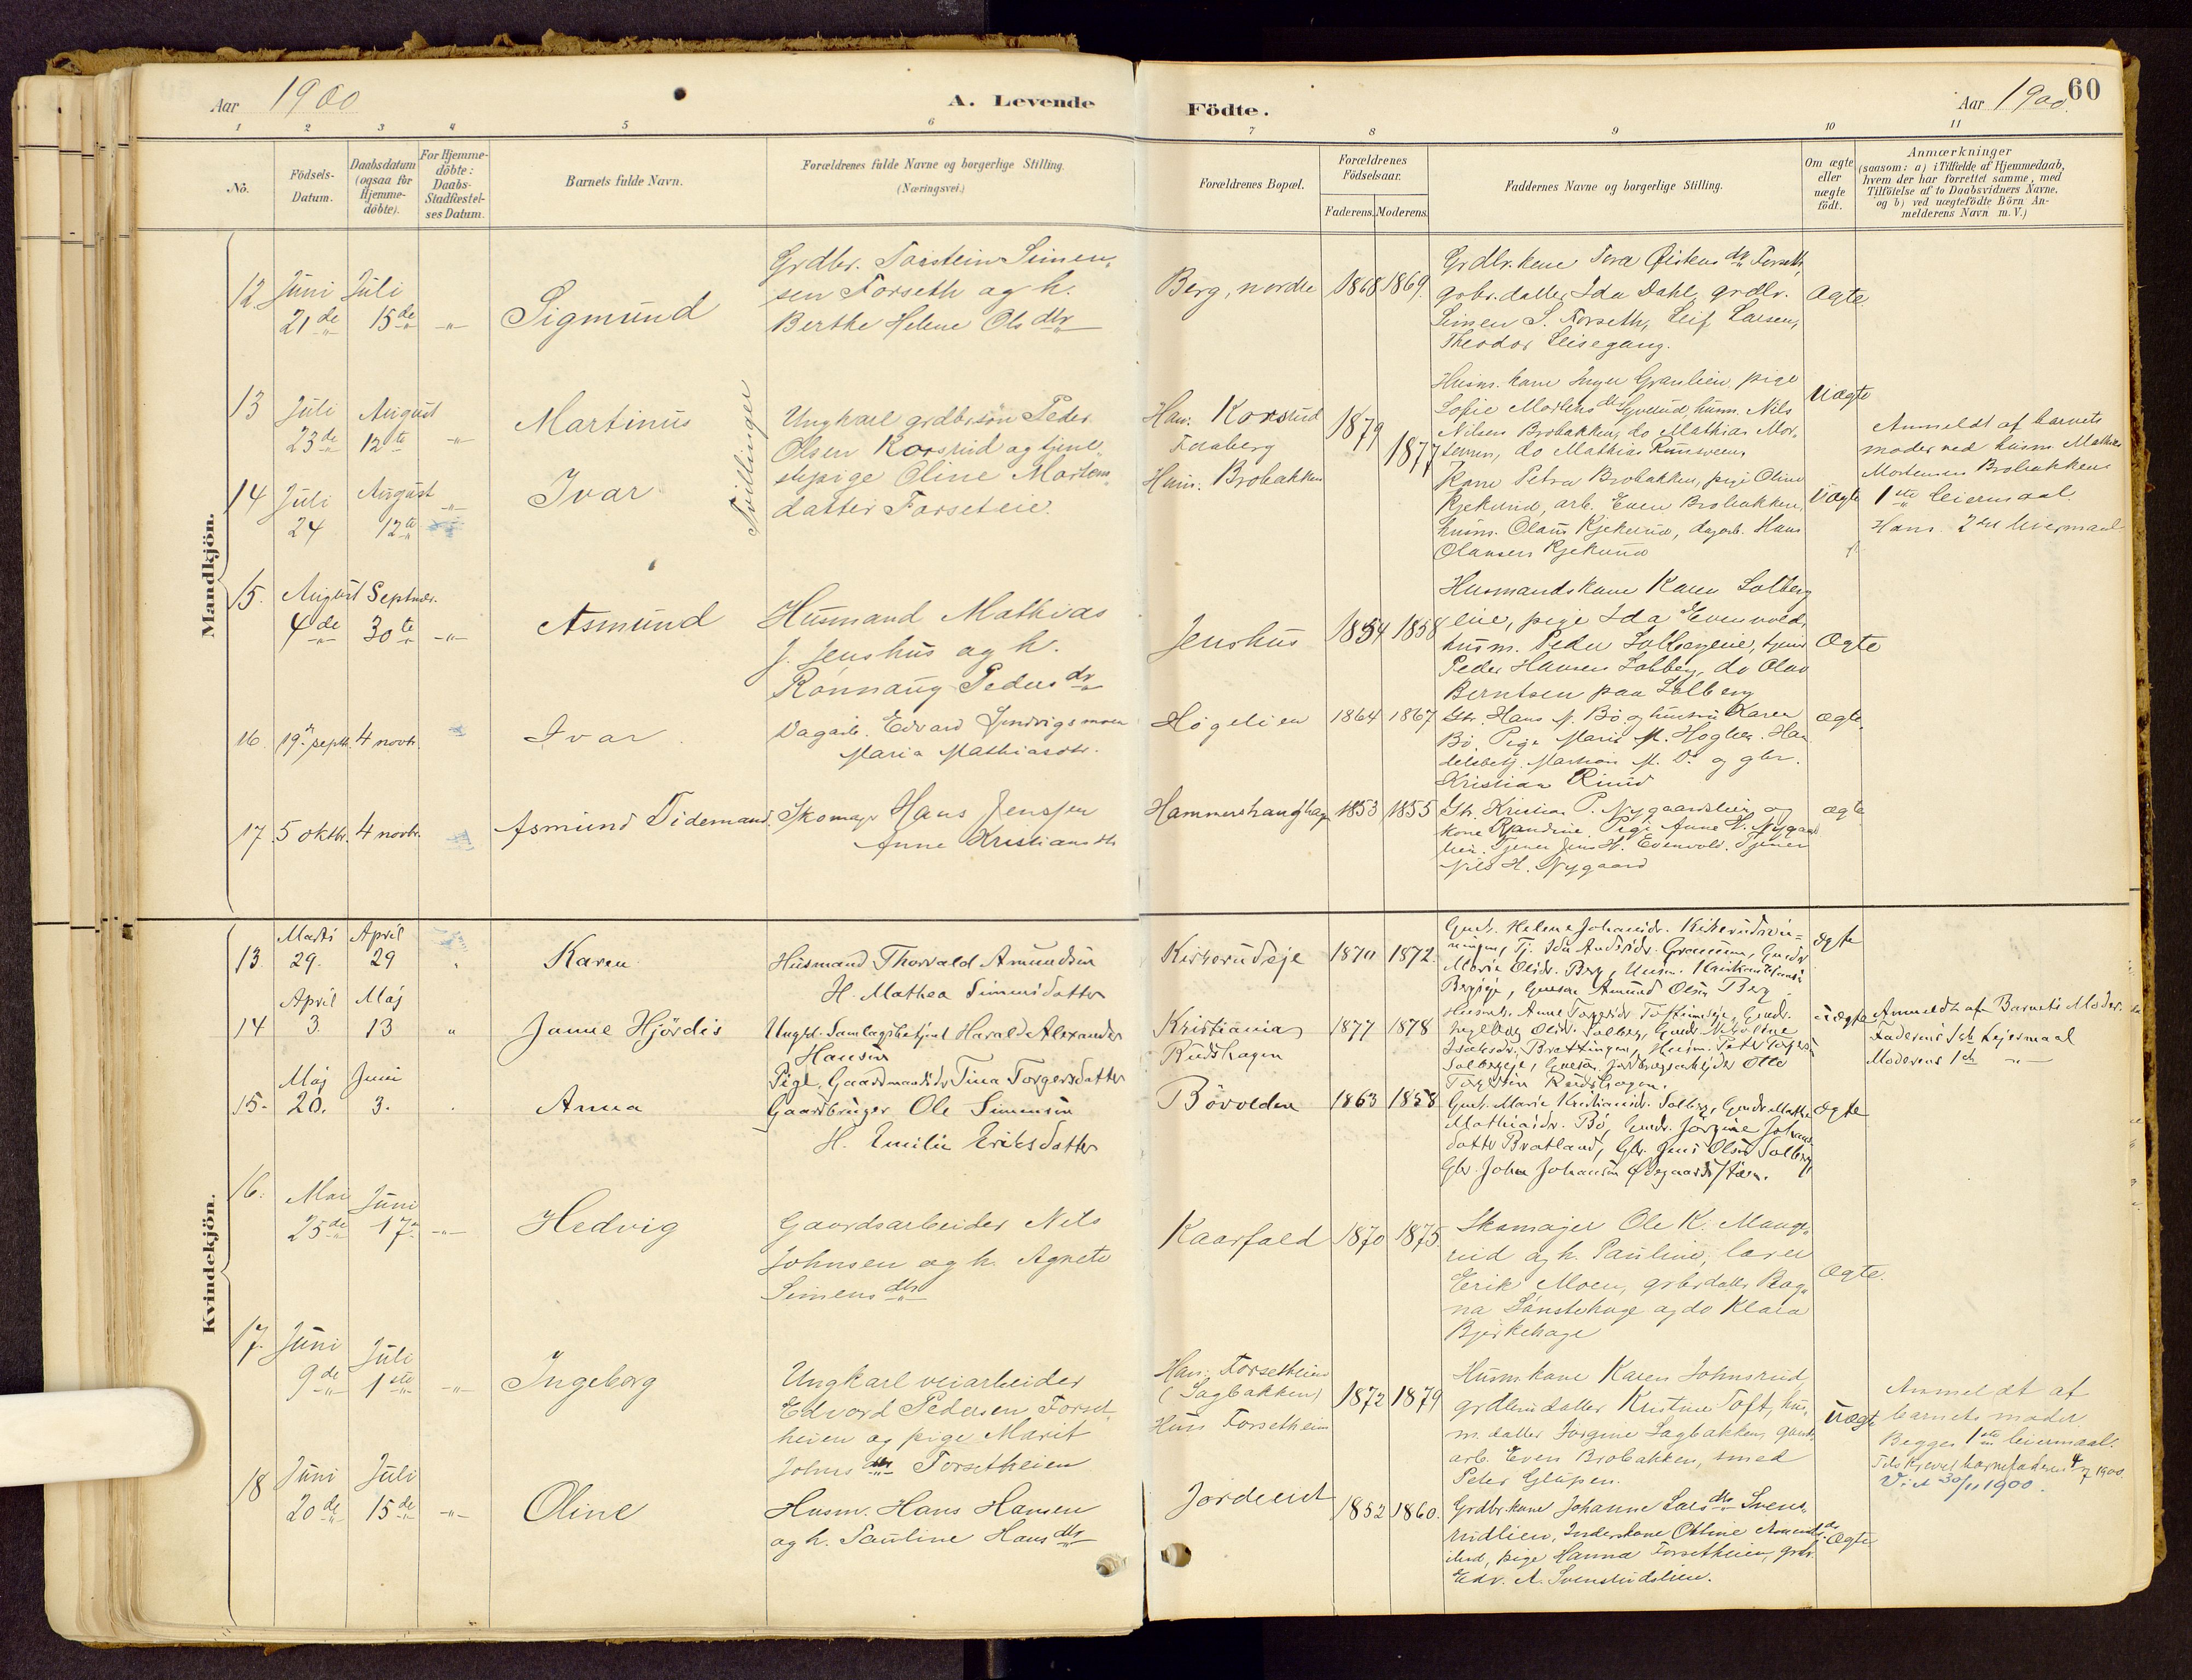 Aar 1900
A. Levende
Födte.
Aar 1900.
60
1 2 3 4 5 6 7 8 9 10 11
No.
Födsels-Datum.
Daabsdatum (ogsaa for Hjemme-döbte).
For Hjemme-döbte: Daabs-Stadfæstel-ses Datum.
Barnets fulde Navn.
Forældrenes fulde Navne og borgerlige Stilling.
(Næringsvei.)
Forældrenes Bopæl.
Forældrenes Födselsaar.
Faderens. Moderens.
Faddernes Navne og borgerlige Stilling.
Om ægte eller uægte födt.
Anmærkninger
(saasom: a) i Tilfælde af Hjemmedaab,
hvem der har forrettet samme, med
Tilföielse af to Daabsvidners Navne.
og b) ved uægtefödte Börn An-
melderens Navn m. V.)
Mandkjön.
12. Juni 21de Juli 15de -"- Sigmund
Grdbr. Torstein Simen-
sen Forseth og h.
Berthe Helene Olsdtr
Berg, nordre 1868 1869.
Grdbr.kone Tora Øistensdtr Forseth,
grbr.datter Ida Dahl, grdbr.
Simen S. Forseth, Leif Larsen,
Theodor Leisegang.
Ægte
13 Juli 23de August 12te -"- Martinus
Tvillinger
Ungkarl grdbrsön Peder
Olsen Korsrud og tjene-
stepige Oline Morten-
datter Forseteie.
Han: Korsrud
Faaberg
Hun: Brobakken
1879
1877
Husm. kone Inger Granlien, pige
Sofie Mortensdtr husm. Nils
Nilsen Brobakken, do Mathias Mor-
tensen, do Mathias
Uægte
Anmeldt af barnets
moder ved husm. Mathias
Mortensen Brobakken
14 Juli 24 August 12te -"- Ivar
Kone Petra Brobakken, pige Oline
Kjekrud, arb. Even Brobakken,
husm. Olaus Kjekrud, dagarb. Hans
Olausen Kjekrud
Uægte
1ste leiermaal.
Hans 2det leiermaal
15. August 4de Septmbr. 30te -"- Asmund
Husmand Mathias
J. Jenshus og h.
Rönnaug Pedersdtr
Jenshus 1854 1858
Husmandskone Karen Solberg
eie, pige Ida Evenvold,
husm. Peder Solbergeie, tjener
Peder Hansen Solberg, do Olav
Berntsen paa Solberg
Ægte
16. 19. septb. 4 novbr. Ivar
Dagarb. Edvard Sjndrigsmoen
Maria Mathiasdtr.
Høgelien 1864 1867
Gbr. Hans M. Bö og hustru Karen
Bö. Pige Marit M. Høglien. Han
delsbetj. Martian M. D. og gbr.
Kristian Ruud
ægte.
17. 5 oktbr. 4 novbr. Asmund Tidemand.
Skomager Hans Jenssen
Anne Kristiansdtr
Hammershaughagen 1853 1855
Gb. Kristian P. Nygaardslien og
kone Randine. Pige Anne H. Nygaard
lien. Tjener Jens H. Evenvold. Tjener
Nils H. Nygaard
ægte
Kvindekjön.
13. Marts 29. April 29 " Karen
Husmand Thorvald Amundsen
H. Mathea Simensdatter
Kirkerudeje 1870 1872.
Gmdk. Helene Johansdr. Kirkerudsvin-
ningen, Tj. Ida Andersdr. Granum, Gmdr
Marie Olsdr. Berg, Husm. Kristian Hansen
Bergeje, Gmsøn Amund Olsen Berg.
ægte
14 April 3. Maj 13 " Janne Hjördis
Ungkl. Samlagsbetjent Harald Alexander
Hansen
Pige, Gaardmandsdr Tina Torgersdatter
Kristiania
Rudshagen
1877 1878
Husmk. Anne Torgersdr Toftemseje, Gmdr.
Ingeborg Olsdr. Solberg, Gmdr. Nikoline
Isaksdr. Brettingen, Husm. Peter Torgersen
Solbergeje, Gmsøn, jordbrugsarbejder Otto
Torgersen Rudshagen.
uægte
Anmeldt af Barnets Moder.
Faderens 1ste Lejermaal
Moderens 1ste -"-
15. Maj 20. Juni 3. Anna
Gaardbruger Ole Simensen
H. Emilie Eriksdatter
Bövolden 1863 1858
Gmk. Marie Kristiansdr. Solberg, Gmdr Mathea
Mathiasdr. Bö, Gmdr. Jorgine Johans-
datter Bratland, Gbr. Jens Olsen Solberg,
Gbr. Johan Johansen Ødegaardsstuen.
ægte
16. Mai 25de Juni 17. -"- Hedvig
Gaardsarbeider Nils
Johnsen og h. Agnete
Simensdtr
Kaarfald 1870 1875
Skomager Ole K. Maugs-
rud og h. Pauline, lærer
Erik Moen, grbr.datter Rag-
na Sönstehage og do Klara
Bjerkehage
Ægte.
17. Juni 9de Juli 1ste -"- Ingeborg
Ungkarl veiarbeider
Edvard Pedersen Forset-
heien og pige Marit
Johnsdtr Forsetheien
Han: Forsetheien
(Sagbakken)
Hun Forsetheien
1872 1879
Husm.kone Karen Johnsrud,
grdbrudatter Kristine Toft, hus-
m. datter Jörgine Sagbakken, gaards
arb. Even Brobakken, smed
Peter Glupen.
Uægte
Anmeldt af
barnets moder.
Begges 1ste leiermaal.
barnefaderen 4/7 1900.
Vid 30/11 1900.
18 Juni 20de Juli 15de -"- Oline
Husm. Hans Hansen
og h. Pauline Hansdtr
Jordeind 1852 1860.
Grdbr.kone Johanne Larsdtr Svens-
rudlien, Inderskone Oline
pige Hanna Forsetheien, grbr.
Edv. A. Svensrudslien.
Ægte